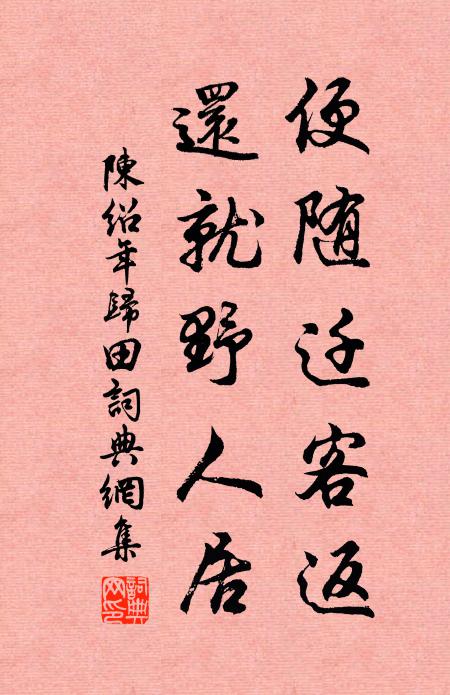 便随迁客返
還就野人居
陳紹年歸田詞典網集
詞典网印